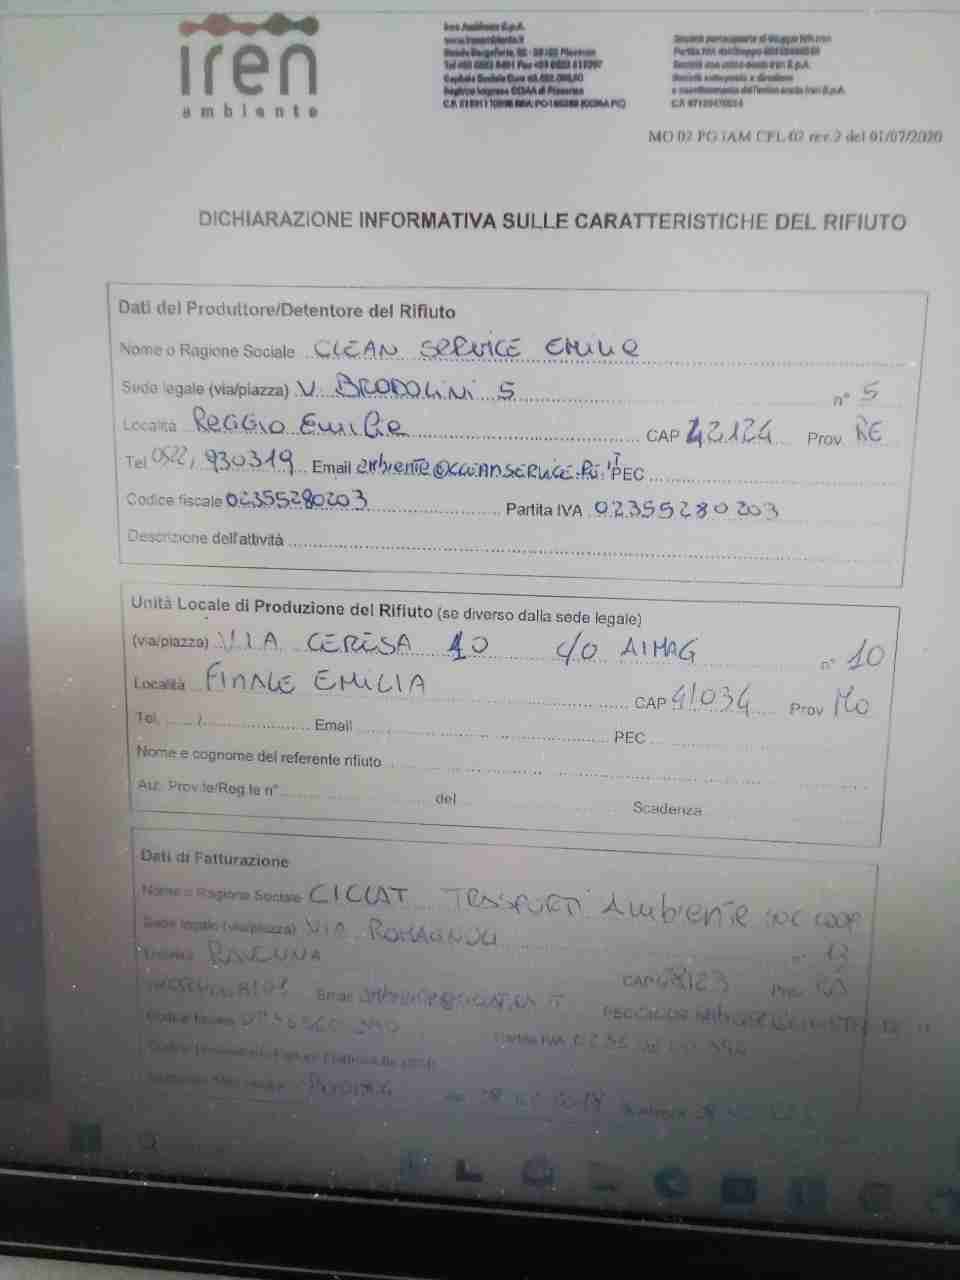 iren
ambiente
Iren Ambiente S.p.A.
www.irenambiente.it
Strada Borgoforte, 22 - 29122 Piacenza
Società partecipante al Gruppo IVA Iren
Società con unico socio Iren S.p.A.
Società sottoposta a direzione
e coordinamento dell'unico socio Iren S.p.A.
C.F. 07129470014
MO 02 PG IAM CFL 02 rev.2 del 01/07/2020
DICHIARAZIONE INFORMATIVA SULLE CARATTERISTICHE DEL RIFIUTO
Dati del Produttore/Detentore del Rifiuto
Nome o Ragione Sociale CLEAN SERVICE EMILIA
Sede legale (via/piazza) V. BRODOLINI 5 n° 5
Località REGGIO EMILIA CAP 42124 Prov RE
Tel 0522, 930319 Email PEC
Codice fiscale 02355280203 Partita IVA 02355280203
Descrizione dell'attività
Unità Locale di Produzione del Rifiuto (se diverso dalla sede legale)
(via/piazza) VIA CERESA 10 c/o AIMAG n° 10
Località FINALE EMILIA CAP 41034 Prov MO
Tel. / Email PEC
Nome e cognome del referente rifiuto
Aut. Prov.le/Reg.le n° del Scadenza
Dati di Fatturazione
Nome o Ragione Sociale CICLAT TRASPORTI AMBIENTE SOC COOP
Sede legale (via/piazza) VIA ROMAGNOLI n° 13
Località RAVENNA CAP 48123 Prov. RA
Email
Codice fiscale Partita IVA